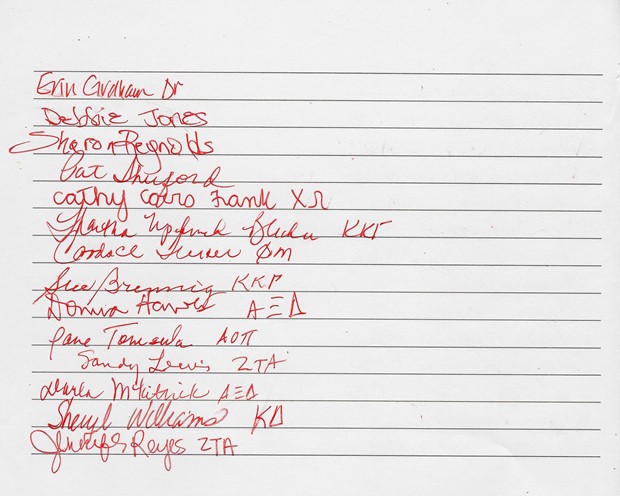 Erin Graham Dr
Debbie Jones
Sharon Reynolds
Pat Shuford
Cathy Cotro Frank XΩ
Martha KKΓ
Candace Turner ΦM
Sue Brennig KKΓ
Donna Harris AΞΔ
Jane AOΠ
Sandy Lewis ZTA
McKitrick AΞΔ
Sheryl Williams KΔ
Jennifer Reyes ZTA